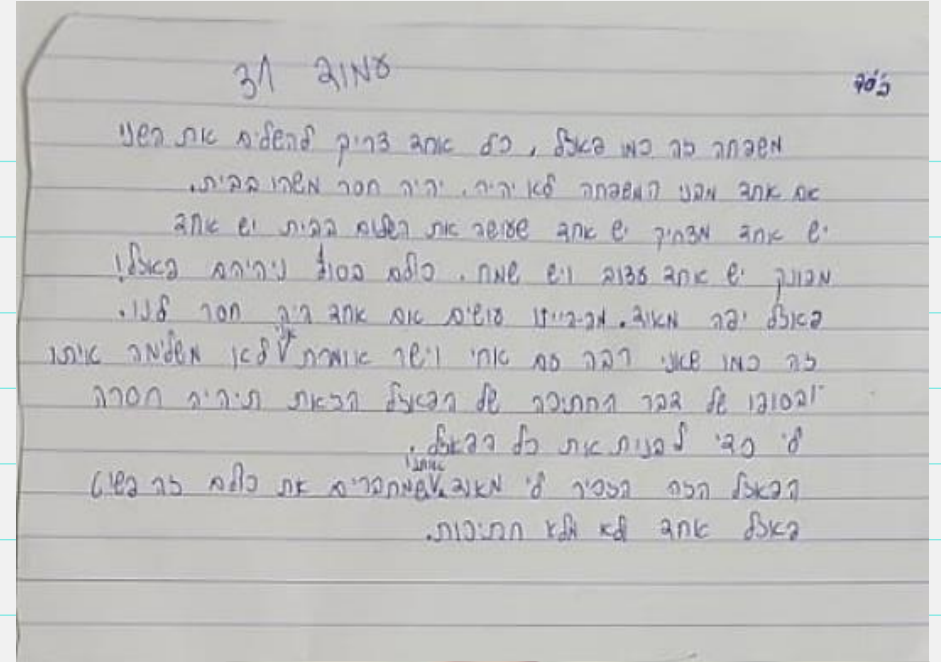 בס"ד
עמוד 31
משפחה זה כמו פאזל, כל אחד צריך להשלים את השני
אם אחד מבני המשפחה לא יהיה. יהיה חסר משהו בבית.
יש אחד מצחיק יש אחד שעושה את השלום בבית יש אחד
מפונק יש אחד עצוב ויש שמח. כולם בסוף ניהיהם פאזל!
פאזל יפה מאוד. מה היינו עושים אם אחד היה חסר לנו.
זה כמו שאני רבה עם אחי וישר אומרת אני לא משלימה איתו
ובסופו של דבר החתיכה של הפאזל הזאת תיהיה חסרה
לי כדי לבנות את כל הפאזל.
הפאזל הזה הזכיר לי מאוד שמחברים את כולם זה בשביל
פאזל אחד לא מלא חתיכות.